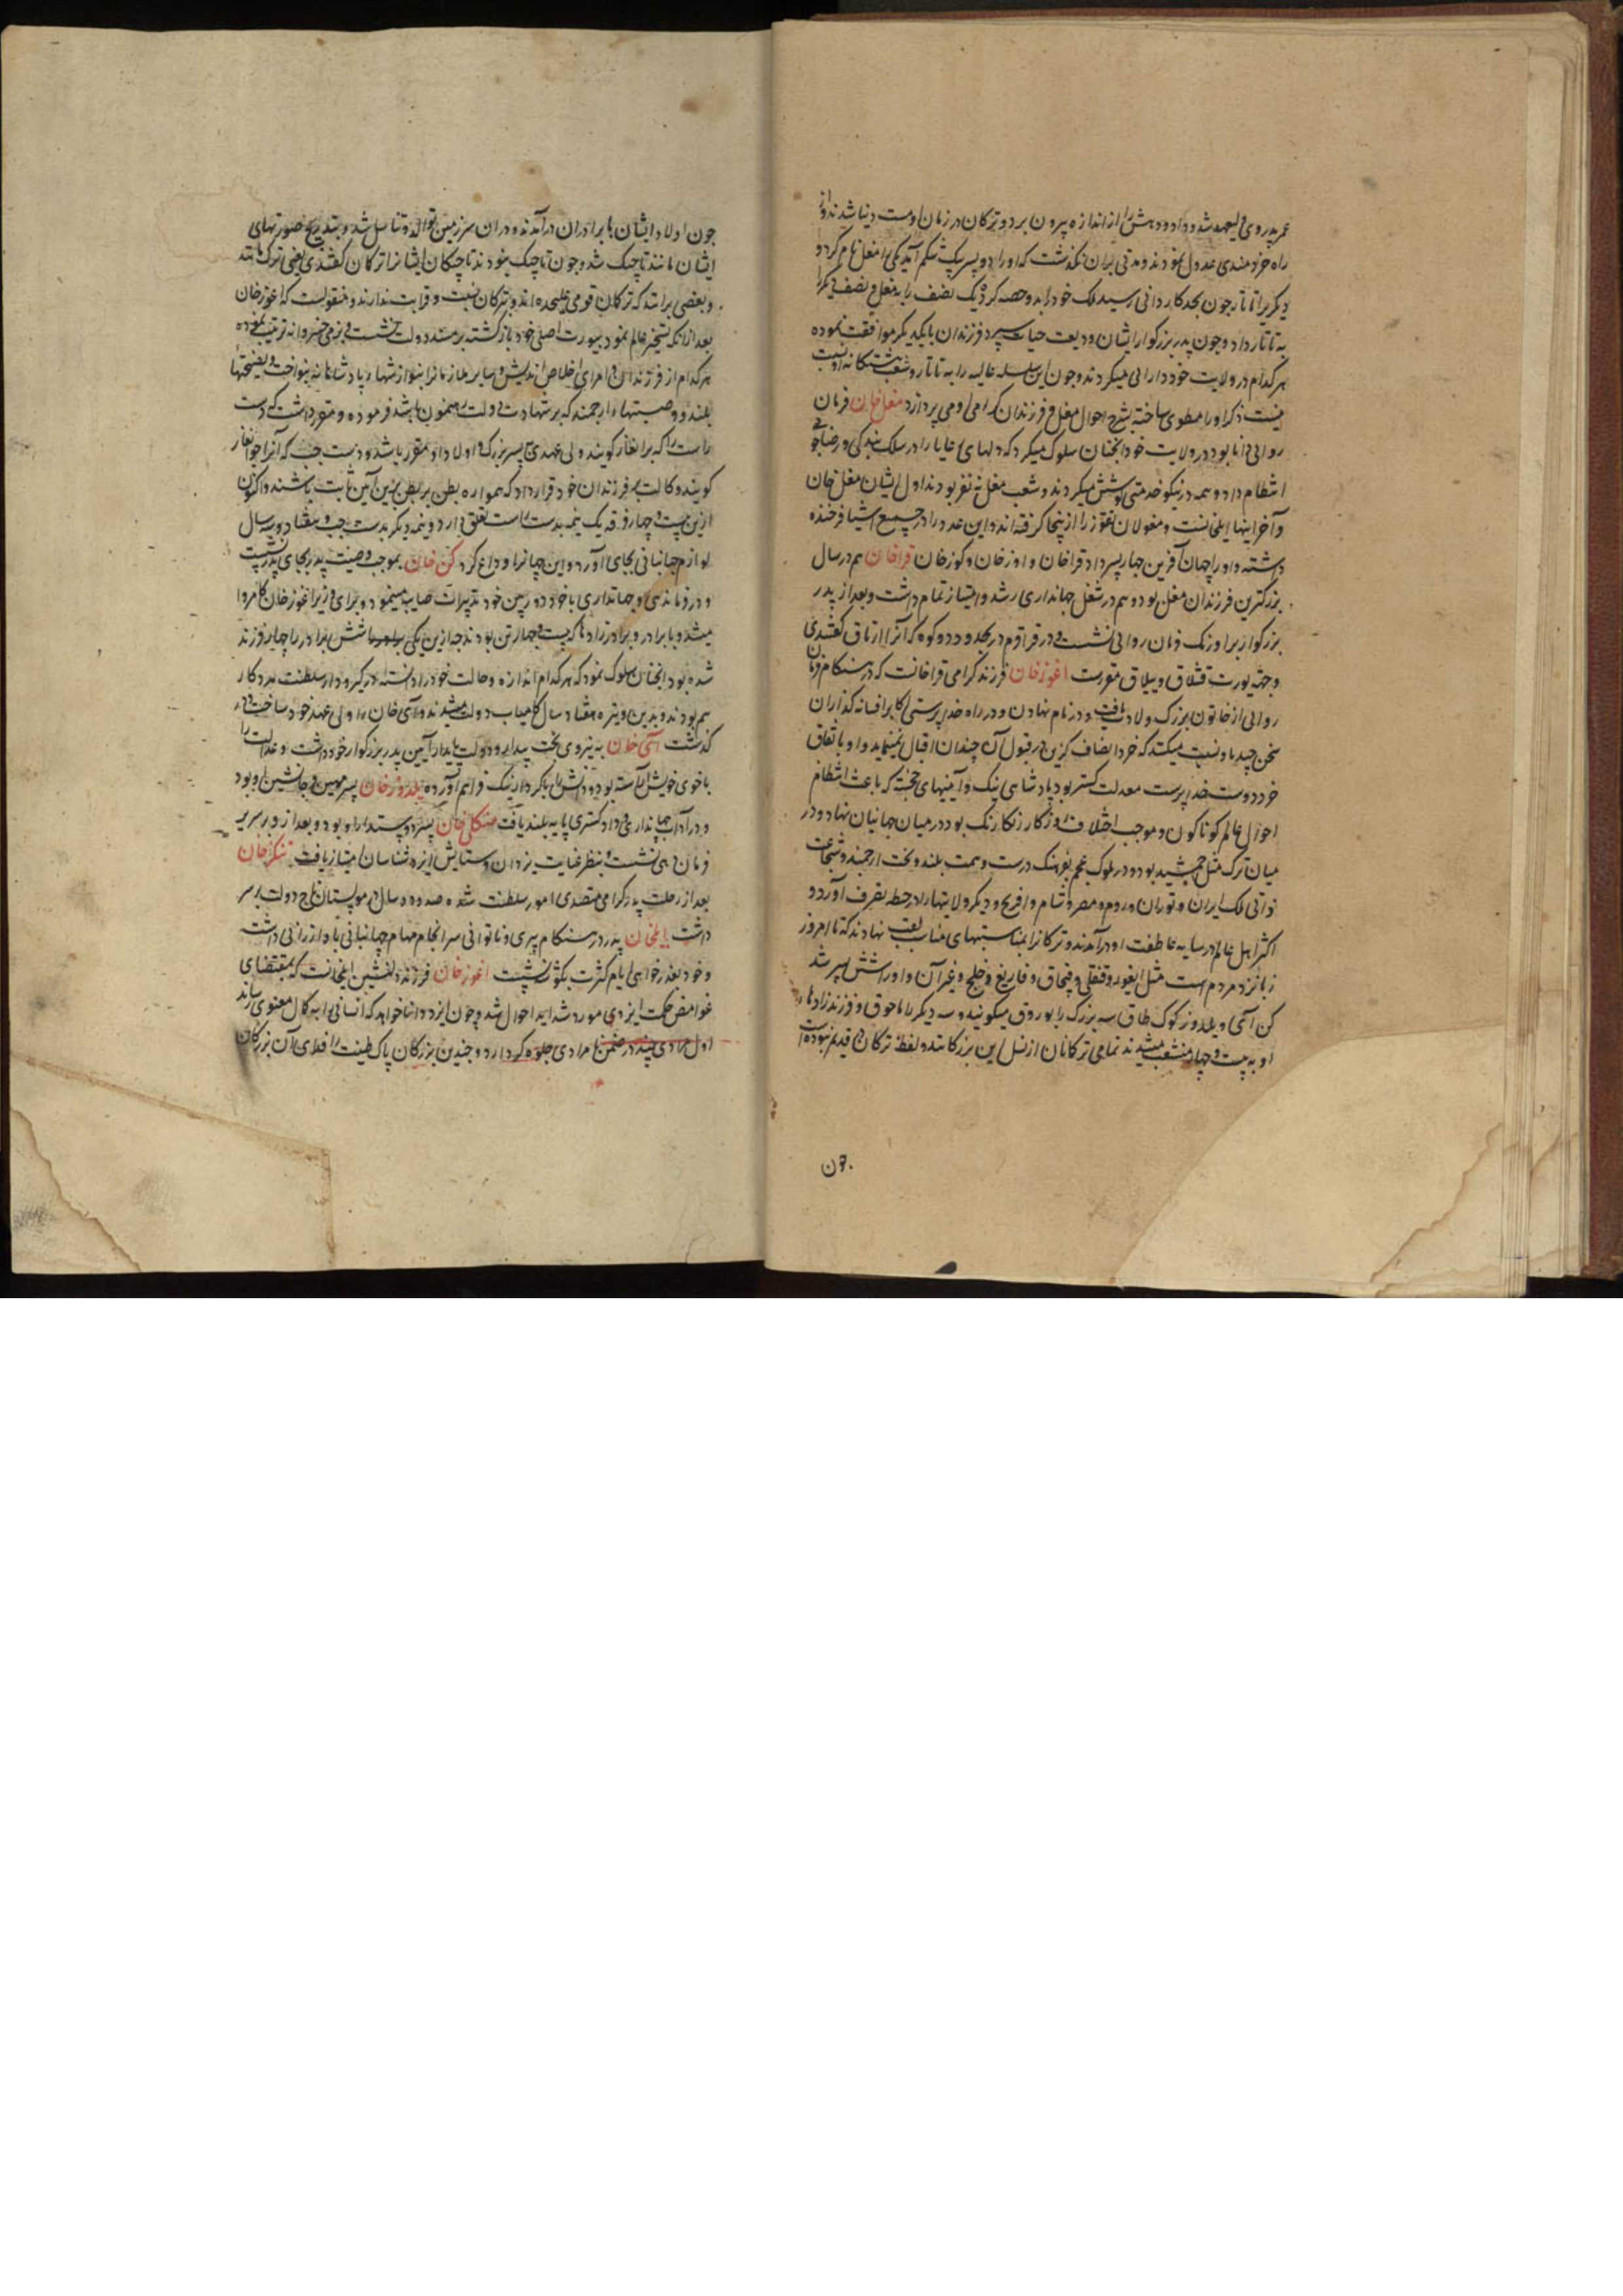 عمر پدر وی ولیعهد شد و داد و دهش را از اندازه بیرون برد و ترکان در زمان او مست دنیا شدند و از
راه خردمندی عدول نمودند و مدتی بران نگذشت که او را دو پسر بیک شکم آمد یکی را مغل نام کرد و
دیگریرا تاتار چون بحد کاردانی رسید ملک خود را بدو حصه کرد یک نصف را به مغل و نصف دیگر را
به تاتار داد و چون پدر بزرگوار ایشان ودیعت حیات سپرد فرزندان بایکدیگر موافقت نموده
هر کدام در ولایت خود دارائی میکردند و چون این سلسله عالیه را به تاتار و شعب هشتگانه او نسبت
نیست ذکر او را مطوی ساخته بشرح احوال مغل و فرزندان گرامی او می پردازد مغل خان فرمان
روائی دانا بود در ولایت خود آنچنان سلوک میکرد که دلهای رعایا را در سلک بندگی و رضاجوئی
انتظام داد و همه در نیکو خدمتی کوشش میکردند و شعب مغل نه نفر بودند اول ایشان مغل خان
و آخر اینها ایلخانست و مغولان تقوز را ازینجا گرفته اند و این عدد را در جمیع اشیا فرخنده
دانسته و او را جهان آفرین چهار پسر داد قراخان و اوزخان و کوزخان قراخان هم در سال
بزرگترین فرزندان مغل بود و هم در شغل جهانداری رشد و امتیاز تمام داشت و بعد از پدر
بزرگوار بر اورنگ فرمان روائی نشست و در قراقرم در حدود دو کوه که آنرا ارتاق گفتندی
و جهة یورت قشلاق و ییلاق مقررست اغوزخان فرزند گرامی قراخانست که در هنگام فرمان
روائی از خاتون بزرگ ولادت یافت و در نام نهادن و در راه خدا پرستی اکابر افسانه گذاران
سخن چند باو نسبت میکنند که خرد انصاف گزین در قبول آن چندان اقبال نمینماید و او باتفاق
خرد دوست خدا پرست معدلت گستر بود پادشاهی نیک و آیینهای خجسته که باعث انتظام
احوال عالم کوناکون و موجب اختلاف روزگار رنگارنگ بود در میان جهانیان نهاد و در
میان ترک مثل جمشید بود در ملوک عجم بفرهنگ درست و همت بلند و بخت ارجمند و شجاعت
ذاتی ملک ایران و توران و روم و مصر و شام و افرنج و دیگر ولایتها را در حیطه تصرف آورد و
اکثر اهل عالم در سایه عاطفت او در آمدند و ترکانرا بمناسبتهای مناسب لقب نهادند که تا امروز
زبانزد مردم است مثل ایغور و قنقلی و قبچاق و قاریغ و خلج و غیر آن و او را شش پسر شد
کن آی و یلدوز کوک طاق سه بزرگ را بوزوق میگویند و سه دیگر را اوچوق و فرزند زادهای
او به بیست و چهار منشعب میشدند تمامی ترکانان از نسل این بزرگانند و لفظ ترکان در قدیم نبوده است
چون
چون اولاد ایشان با برادران در آمدند و در ان سرزمین توالد و تناسل شد و بتدریج صورتهای
ایشان مانند تاجیک شد و چون تاجیک نبودند تاجیکان ایشانرا ترکان گفتندی یعنی ترک مانند
و بعضی برانند که ترکمان قومی علیحده اند و بترکان نسبت و قرابت ندارند و منقولست که اغوزخان
بعد از آنکه تسخیر عالم نمود بیورت اصلی خود بازگشته بر مسند دولت نشست و بزمی خسروانه ترتیب نموده
هر کدام از فرزندان و امرای اخلاص اندیش و سایر ملازمانرا بنوازشهای پادشاهانه بنواخت و نصیحتهای
بلند و وصیتهای ارجمند که بر شهادت دولت رهنمون باشد فرموده و مقرر داشت که دست
راست را که برانغار گویند و ولی عهدی پسر بزرگ و اولاد او مقرر باشد و دست چپ که آنرا جوانغار
گویند وکالت فرزندان خود قرار داد که همواره بطن بر بطن برین آیین ثابت باشند و اکنون
ازین بیست و چهار فرقه یک نیمه بدست راست تعلق دارد و نیمه دیگر بدست چپ و هفتاد و سه سال
لوازم جهانبانی بجای آورد و این جهانرا وداع کرد کن خان بموجب وصیت پدر بجای پدر نشست
و در فرماندهی و جهانداری با خود دوربین خود تدبیرات صایب مینمود و برای وزیر اغوزخان کامروا
میشد و با برادر و برادر زادها که بیست و چهار تن بودند چه ازین یکی شش برادر را چهار فرزند
شده بود آنچنان سلوک نمود که هر کدام اندازه و حالت خود را دانسته در گیرودار سلطنت مددکار
هم بودند و بدین وتیره هفتاد سال کامیاب دولت میشدند و آی خان را ولی عهد خود ساخت و
گذشت آی خان به نیروی بخت بیدار و دولت پایدار آیین پدر بزرگوار خود داشت و عدالت را
باخوی خویش آراسته بود و دانش را با کردار نیک فراهم آورده یلدوزخان پسر مهین و جانشین او بود
و در آداب جهانداری و دادگستری پایه بلند یافت منکلی خان پسر دوستدار او بود و بعد از و بر سریر
فرمان دهی نشست و بنظر عنایت یزدان و ستایش ایزد شناسان امتیاز یافت تنکزخان
بعد از رحلت پدر گرامی متصدی امور سلطنت شد صد و ده سال در موبستان تاج دولت بر سر
داشت ایلخان پدر در هنگام پیری و ناتوانی سرانجام مهام جهانبانی باو ارزانی داشت
و خود بعذرخواهی ایام کثرت بکوشه نشست اغوزخان فرزند دلنشین ایلخانست که بمقتضای
غوامض حکمت ایزدی مورد شداید احوال شد و چون ایزد دانا خواهد که انسانی را به کمال معنوی رساند
اول مرادی چند در ضمن نامرادی جلوه گر دارد و چندین بزرگان پاک طینت را فدای آن بزرگان